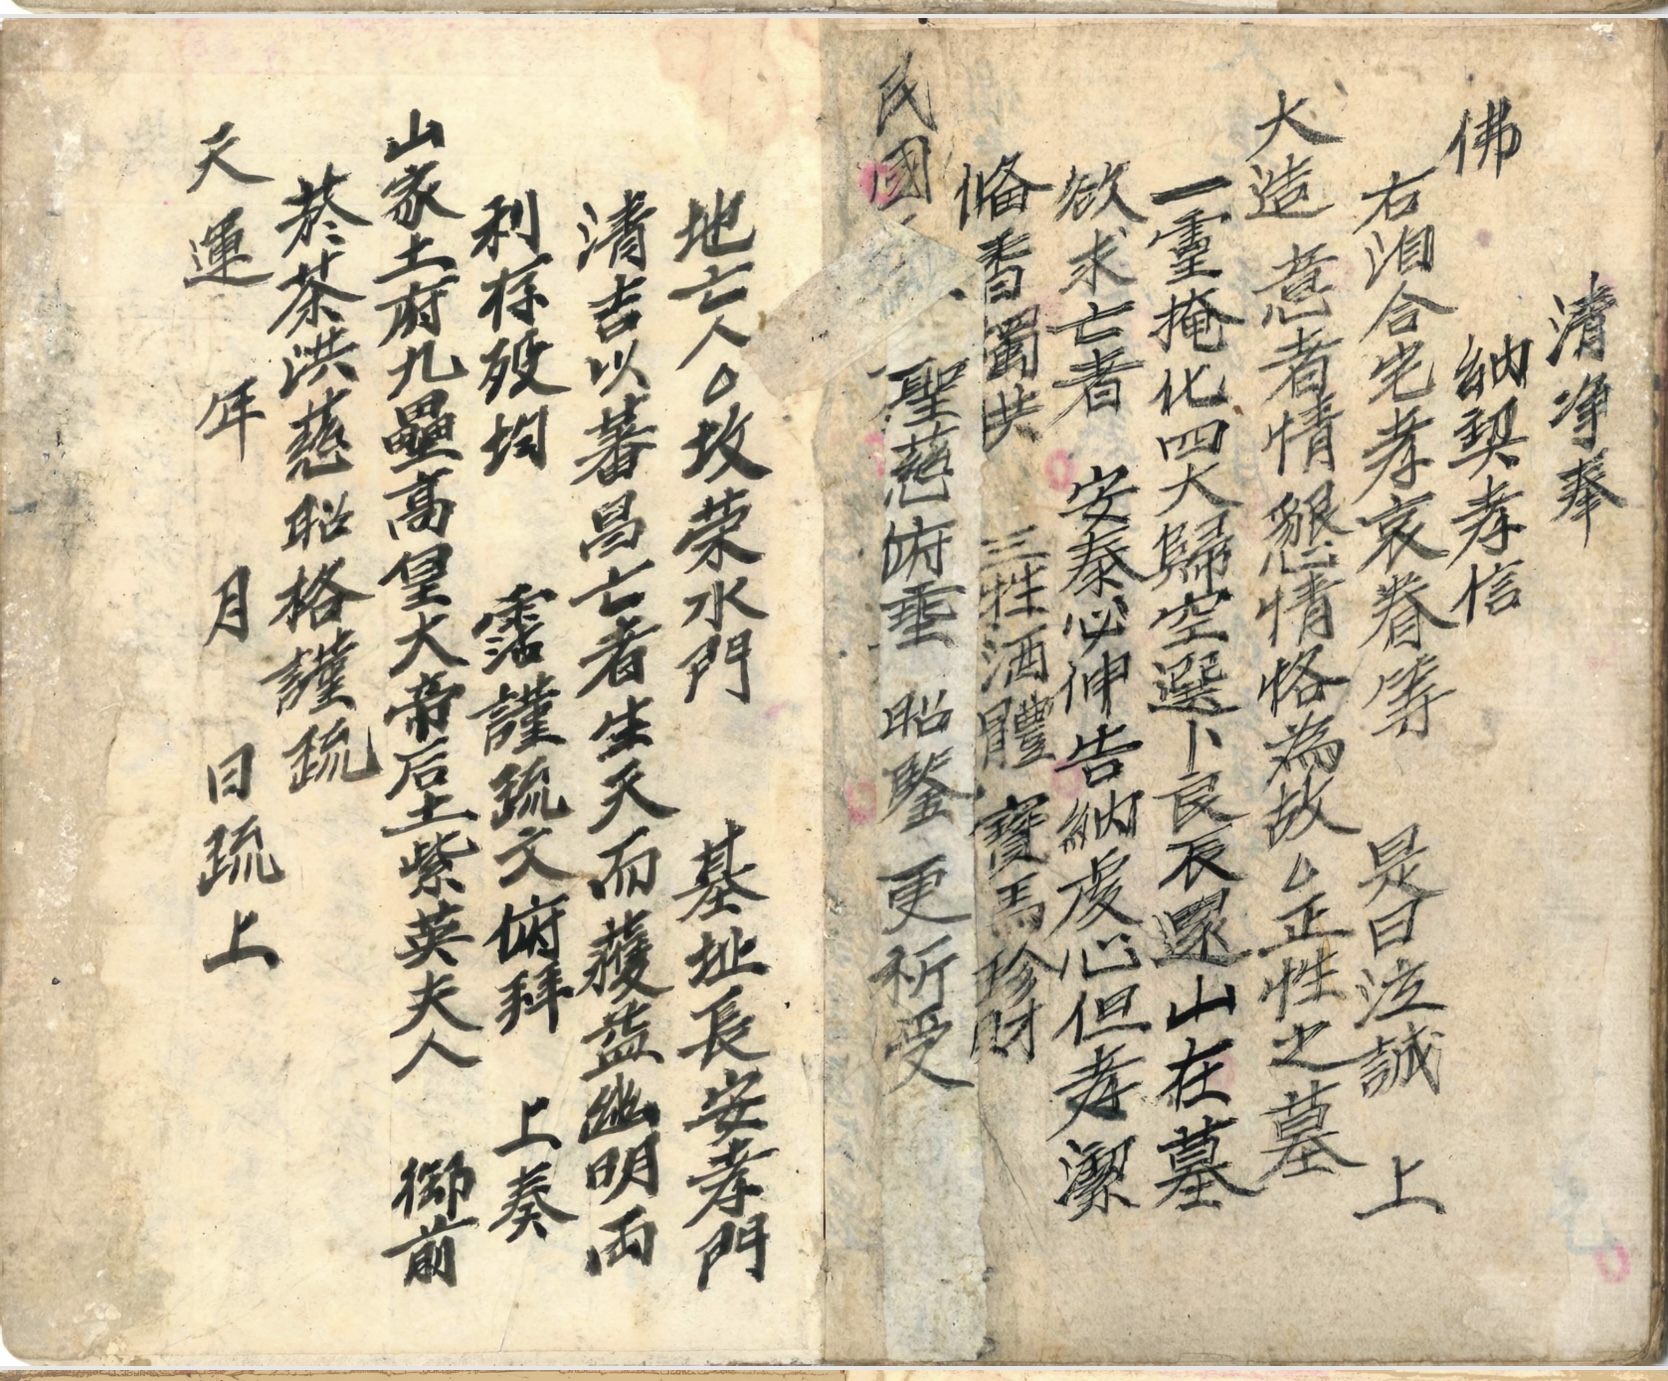 清净奉
佛 納契孝信
右洎合宅孝哀眷等 是日泣誠 上
大造 意者情懇情恪為故厶正性之墓
一靈掩化四大歸空選卜良辰還山在墓
欲求亡者 安泰必伸告納虔心但孝潔
俻香蜀共 三牲洒醴 寶馬珍財
民國 聖慈俯垂 昭鑒 更祈受
地亡人〇坟荣水門 基址長安孝門
清吉以蕃昌亡者生天而獲益幽明両
利存殁均 霑謹疏文俯拜 上奏
山家土府九壘高皇大帝后土紫英夫人 御前
菸茶洪慈昭格謹疏
天運 年 月 日疏上